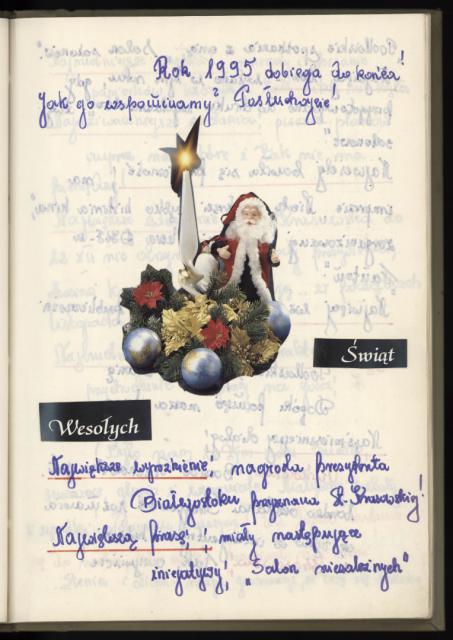 Rok 1995 dobiega do końca!
Jak go wspominamy? Posłuchajcie!
Świąt
Wesołych
Największe wyróżnienie, nagroda prezydenta
Białegostoku przyznana
Największą frasę! miały następujące
inicjatywy! "Salon niezależnych"